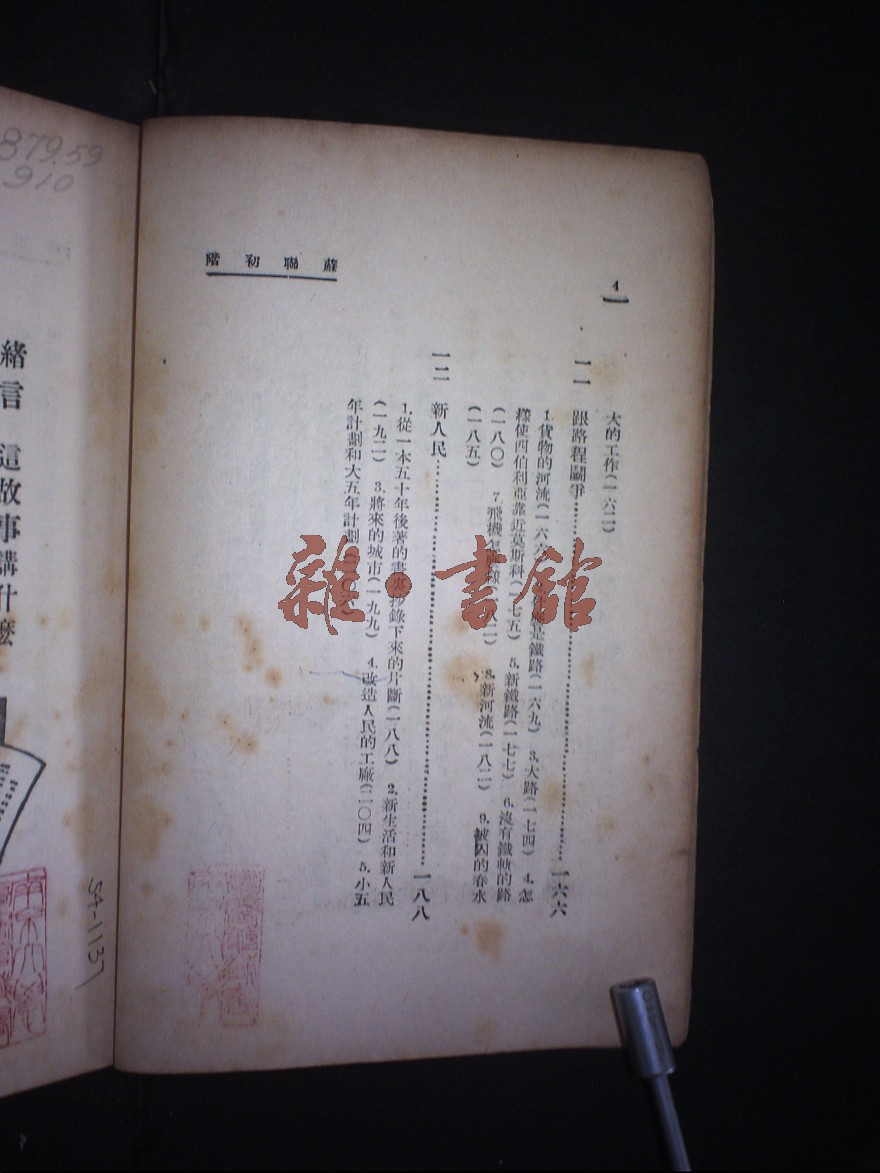 蘇聯初階
4
大的工作(一六二)
一一 跟路程鬭爭……一六六
1.貨物的河流(一六六) 是鐵路(一六九) 3.大路(一七四) 4.怎
樣使西伯利亞靠近莫斯科(一七五) 5.新鐵路(一七七) 6.沒有鐵軌的路
(一八〇) 7.飛機怎 (一八一) 8.新河流(一八二) 9.被囚的春水
(一八五)
一二 新人民……一八八
1.從一本五十年後著的書裏抄錄下來的片斷(一八八) 2.新生活和新人民
(一九二) 3.將來的城市(一九九) 4.改造人民的工廠(二〇四) 5.小五
年計劃和大五年計劃
雜·書館
879.59
910
緒言 這故事講什麼
54-1137